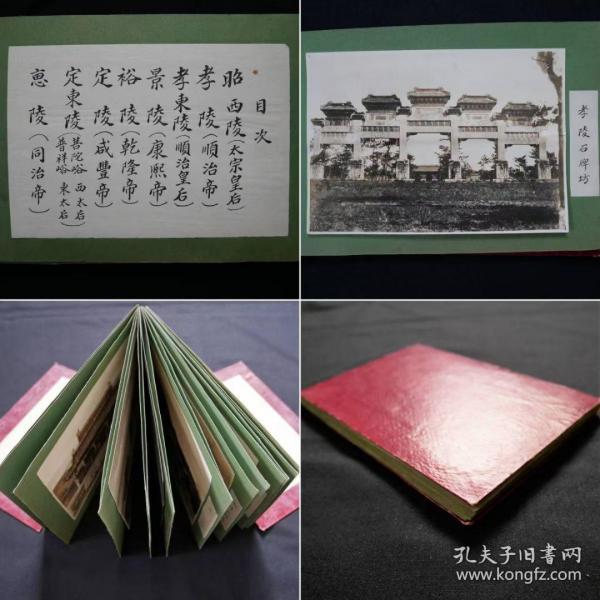 目次
昭西陵(太宗皇后)
孝陵(順治帝)
孝東陵(順治皇后)
景陵(康熙帝)
裕陵(乾隆帝)
定陵(咸豐帝)
定東陵(菩陀峪 西太后)
(普祥峪 東太后)
惠陵(同治帝)
孝陵石牌坊
孔夫子旧書网
www.kongfz.com